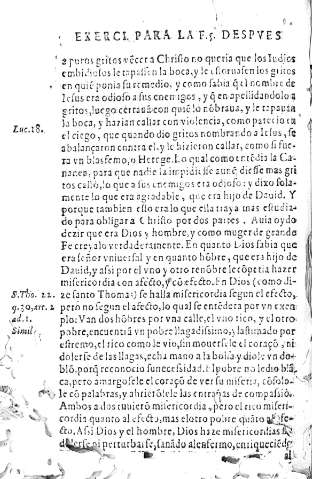 EXERCI. PARA LA F.5. DESPVES
a puros gritos vẽcer a Christo no queria que los Iudios
embidiosos le tapassen la boca, y le estoruassen los gritos
en quiẽ ponia su remedio, y como sabia q̃ el nombre de
Iesus era odioso a sus enemigos, y q̃ en apellidandolo a
gritos, luego cerrauã con quiẽ lo nõbraua, y le tapauan
la boca, y hazian callar con violencia, como parecio en
Luc. 18.
el ciego, que quando dio gritos nombrando a Iesus, se
abalançaron contra el, y le hizieron callar, como si fue-
ra vn blasfemo, o Herege. Lo qual como entẽdia la Ca-
nanea, para que nadie la impidiesse
gritos callò, lo que a sus enemigos era odioso: y dixo sola-
mente lo que era agradable, que era hijo de Dauid. Y
porque tambien esso era lo que ella traya mas estudia-
do para obligar a Christo por dos partes. Auia oydo
dezir que era Dios y hombre, y como muger de grande
Fe creyalo verdaderamente. En quanto Dios sabia que
era señor vniuersal y en quanto hõbre, que era hijo de
Dauid, y assi por el vno y otro renõbre le cõpetia hazer
misericordia con afecto, y cõ efecto. En Dios (como di-
S. Tho. 22.
ze santo Thomas) se halla misericordia segun el efecto,
q. 30. art. 2
pero no segun el afecto, lo qual se entẽdera por vn exem-
ad. 1.
Simil.
plo: Van dos hõbres por vna calle, el vno rico, y el otro
pobre, encuentrã vn pobre llagadissimo, y lastimado por
estremo, el rico como le vio, sin mouersele el coraçõ, ni
dolerse de las llagas, echa mano a la bolsa y diole vn do-
blõ, porq̃ reconocio su necessidad. El pobre no le dio blã-
ca, pero amargosele el coraçõ de ver su miseria, cõsolo-
le cõ palabras, y abrierõsele las entrañas de compassiõ.
Ambos a dos tuuierõ misericordia, pero el rico miseri-
cordia quanto al efecto, mas el otro pobre quãto al afe-
cto. Assi Dios y el hombre, Dios haze misericordias sin
dolerse ni perturbarse, sanãdo al enfermo, enriqueciẽ-
al